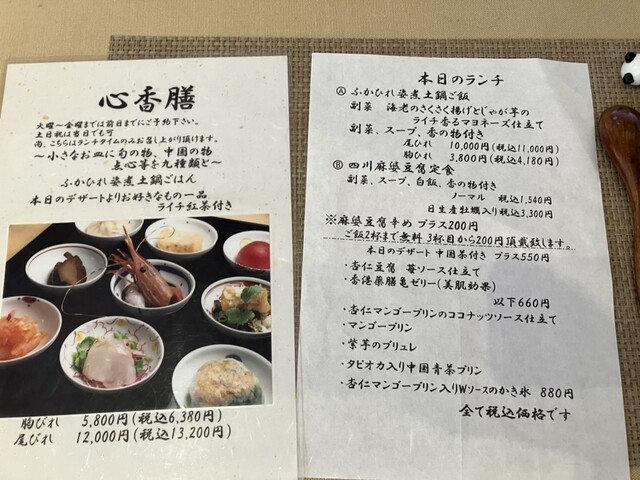 心香膳
火曜～金曜までは前日までにご予約下さい。
土日祝は当日でも可
尚、こちらはランチタイムのみお召し上がり頂けます。
～小さなお皿に旬の物、中国の物
点心等を九種類と～
ふかひれ姿煮土鍋ごはん
本日のデザートよりお好きなもの一品
ライチ紅茶付き
胸びれ 5,800円(税込6,380円)
尾びれ 12,000円(税込13,200円)
本日のランチ
Ⓐ ふかひれ姿煮土鍋ご飯
副菜 海老のさくさく揚げとじゃが芋の
ライチ香るマヨネーズ仕立て
副菜、スープ、香の物付き
尾びれ 10,000円(税込11,000円)
胸びれ 3,800円(税込4,180円)
Ⓑ 四川麻婆豆腐定食
副菜、スープ、白飯、香の物付き
ノーマル 税込1,540円
日生産牡蠣入り税込3,300円
※麻婆豆腐辛め プラス200円
ご飯2杯まで無料 3杯目から200円頂戴致します。
本日のデザート 中国茶付き プラス550円
・杏仁豆腐 苺ソース仕立て
・香港薬膳亀ゼリー(美肌効果)
以下660円
・杏仁マンゴープリンのココナッツソース仕立て
・マンゴープリン
・紫芋のブリュレ
・タピオカ入り中国青茶プリン
・杏仁マンゴープリン入りWソースのかき氷 880円
全て税込価格です